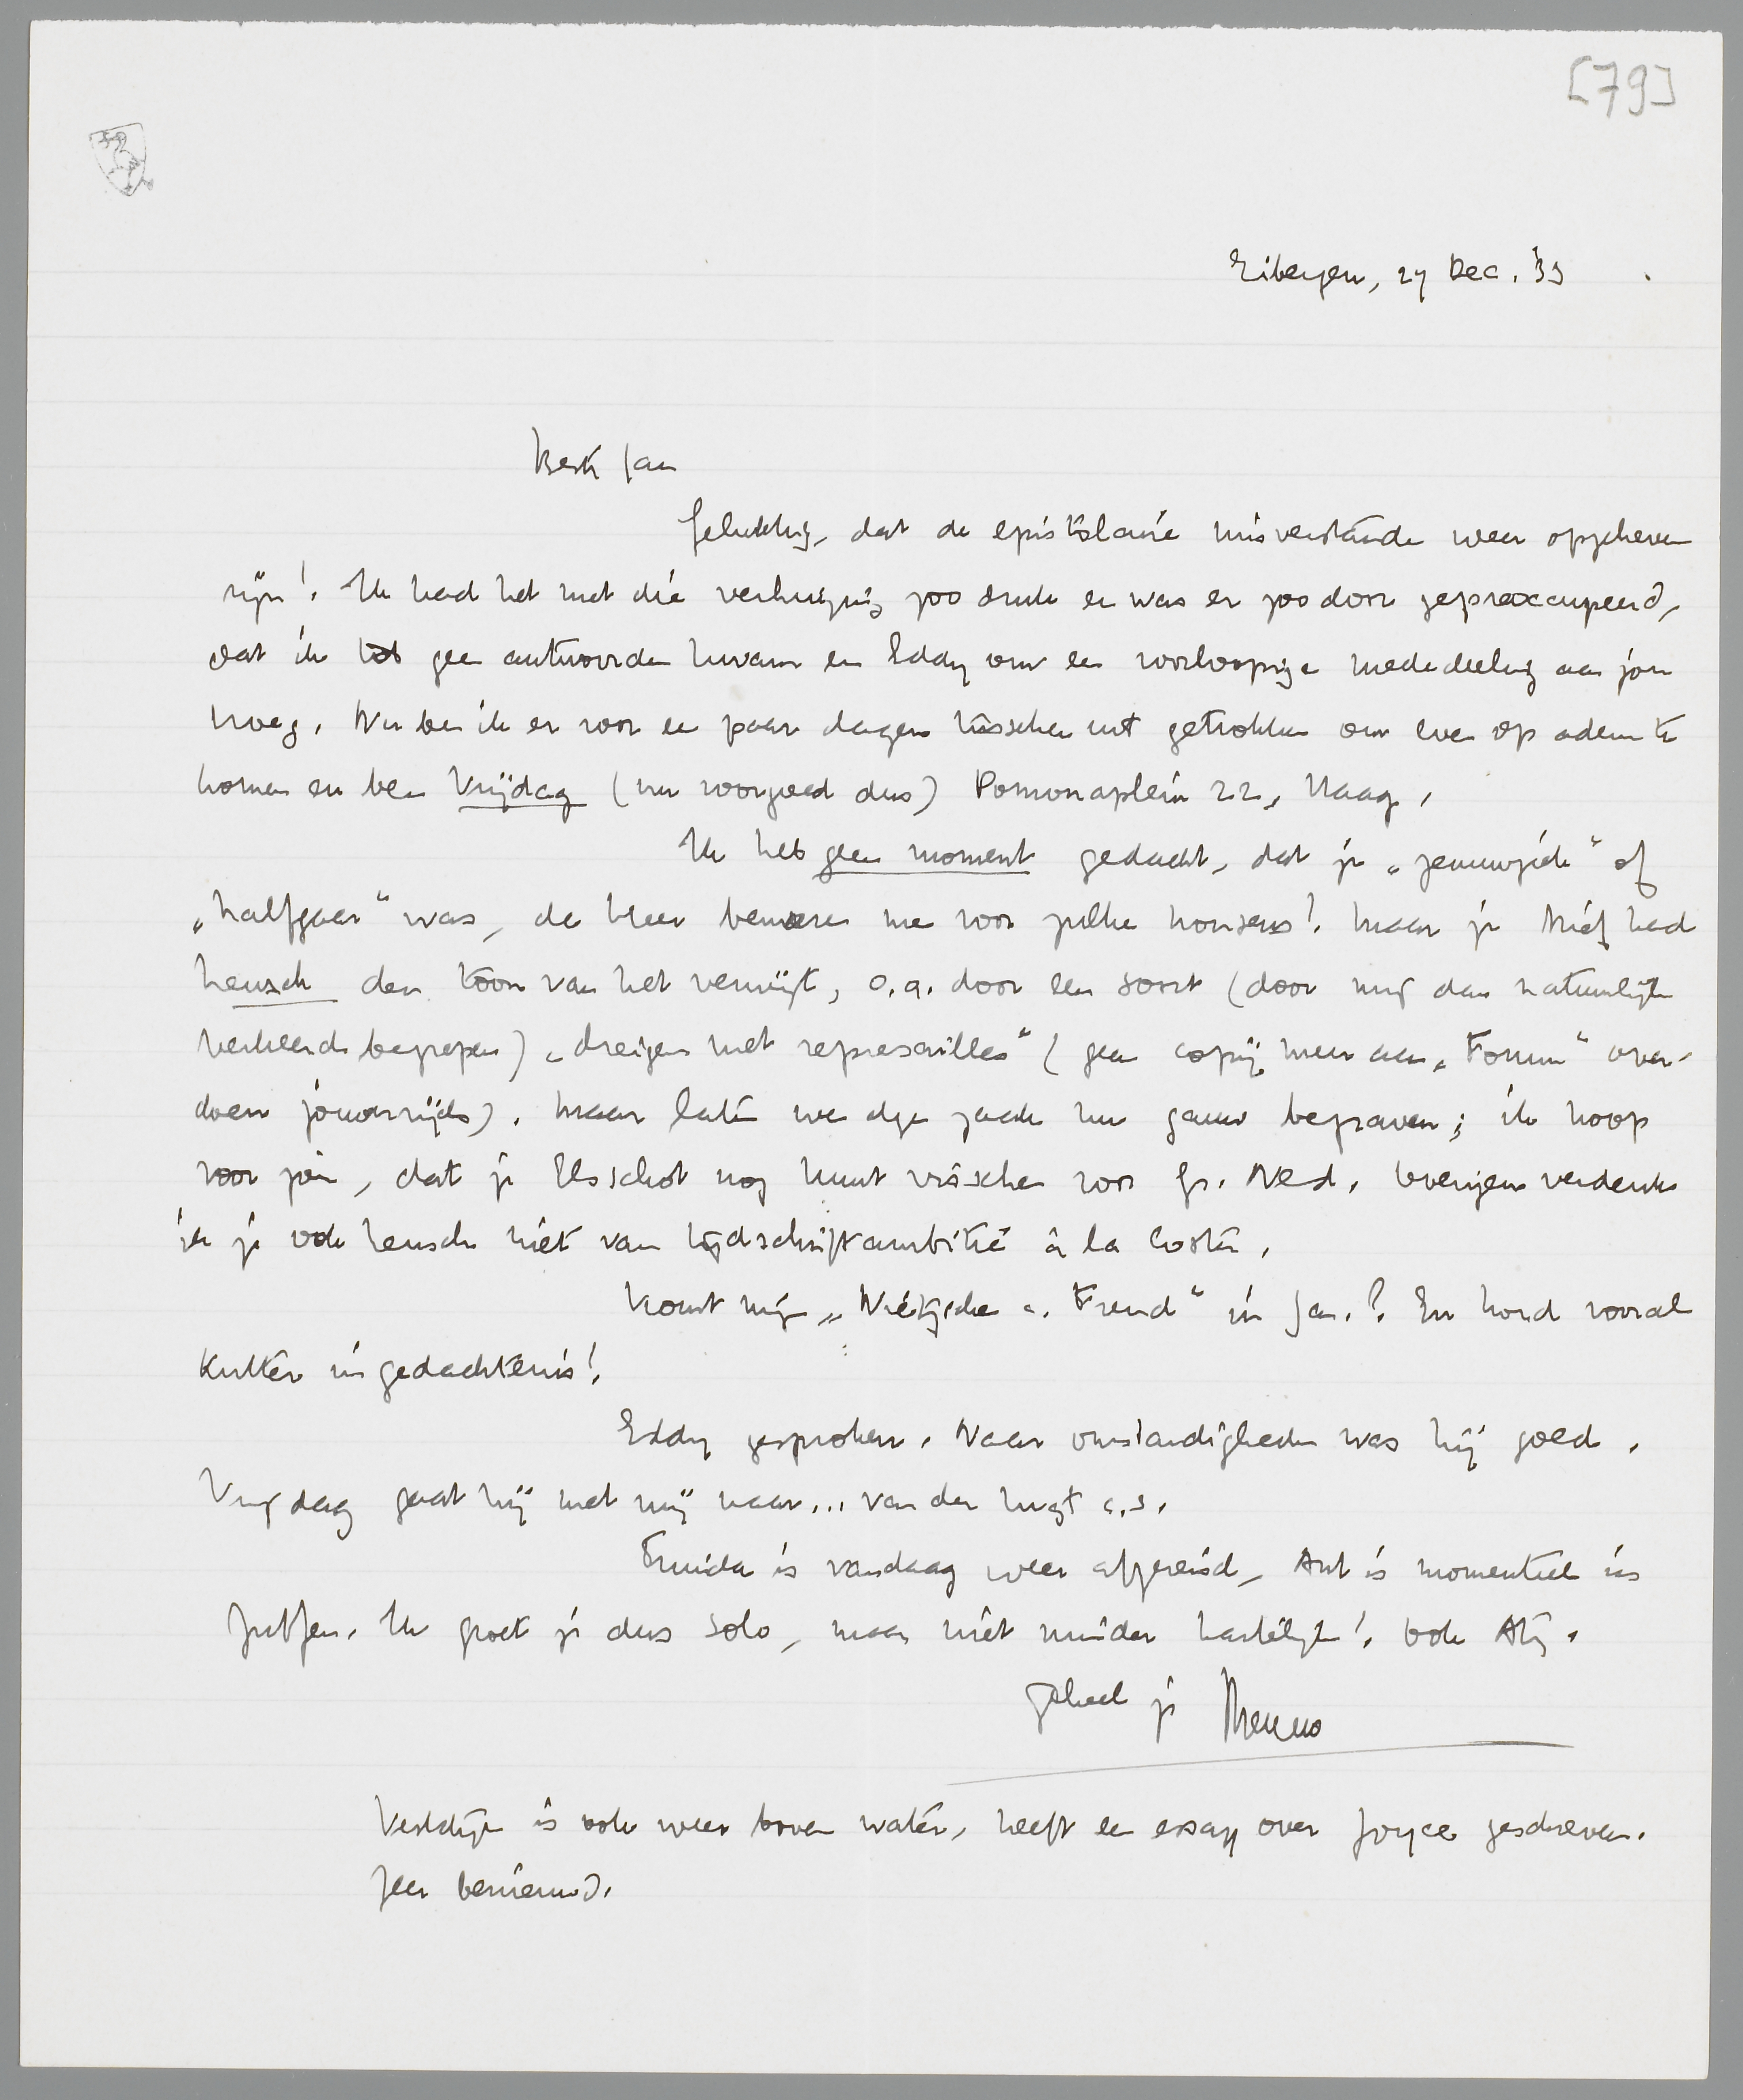 [79]
Eibergen, 27 Dec. '33
Beste Jan
Gelukkig, dat de epistolaire misverstanden weer opgeheven
zijn! Ik had het met die verhuizing zoo druk en was er zoo door gepraeoccupeerd,
dat ik tot geen antwoorden kwam en Eddy om een voorloopige mededeeling aan jou
vroeg. Nu ben ik er voor een paar dagen tusschen uit getrokken om even op adem te
komen en ben Vrijdag (nu voorgoed dus) Pomonaplein 22, Haag.
Ik heb geen moment gedacht, dat je „zenuwziek" of
„halfgaar" was, de Heer beware me voor zulke nonsens! Maar je brief had
heusch den toon van het verwijt, o.a. door een soort (door mij dan natuurlijk
verkeerd begrepen) „dreigen met represailles" (geen copij meer aan „Forum" over-
doen jouwerzijds). Maar laten we deze zaak nu gauw begraven; ik hoop
voor jou, dat je Elsschot nog kunt visschen voor Gr. Ned. Overigens verdenk
ik je ook heusch niet van tijdschriftambitie à la Coster.
Komt mijn „Nietzsche c. Freud" in Jan.? En houd vooral
Kutter in gedachtenis!
Eddy gesproken. Naar omstandigheden was hij goed.
Vrijdag gaat hij met mij naar... van der Lugt c.s.
Truida is vandaag weer afgereisd, Ant is momenteel in
Zutfen. Ik groet je dus solo, maar niet minder hartelijk! Ook Atij.
geheel je Menno
Vestdijk is ook weer boven water, heeft een essay over Joyce geschreven.
Zeer benieuwd.